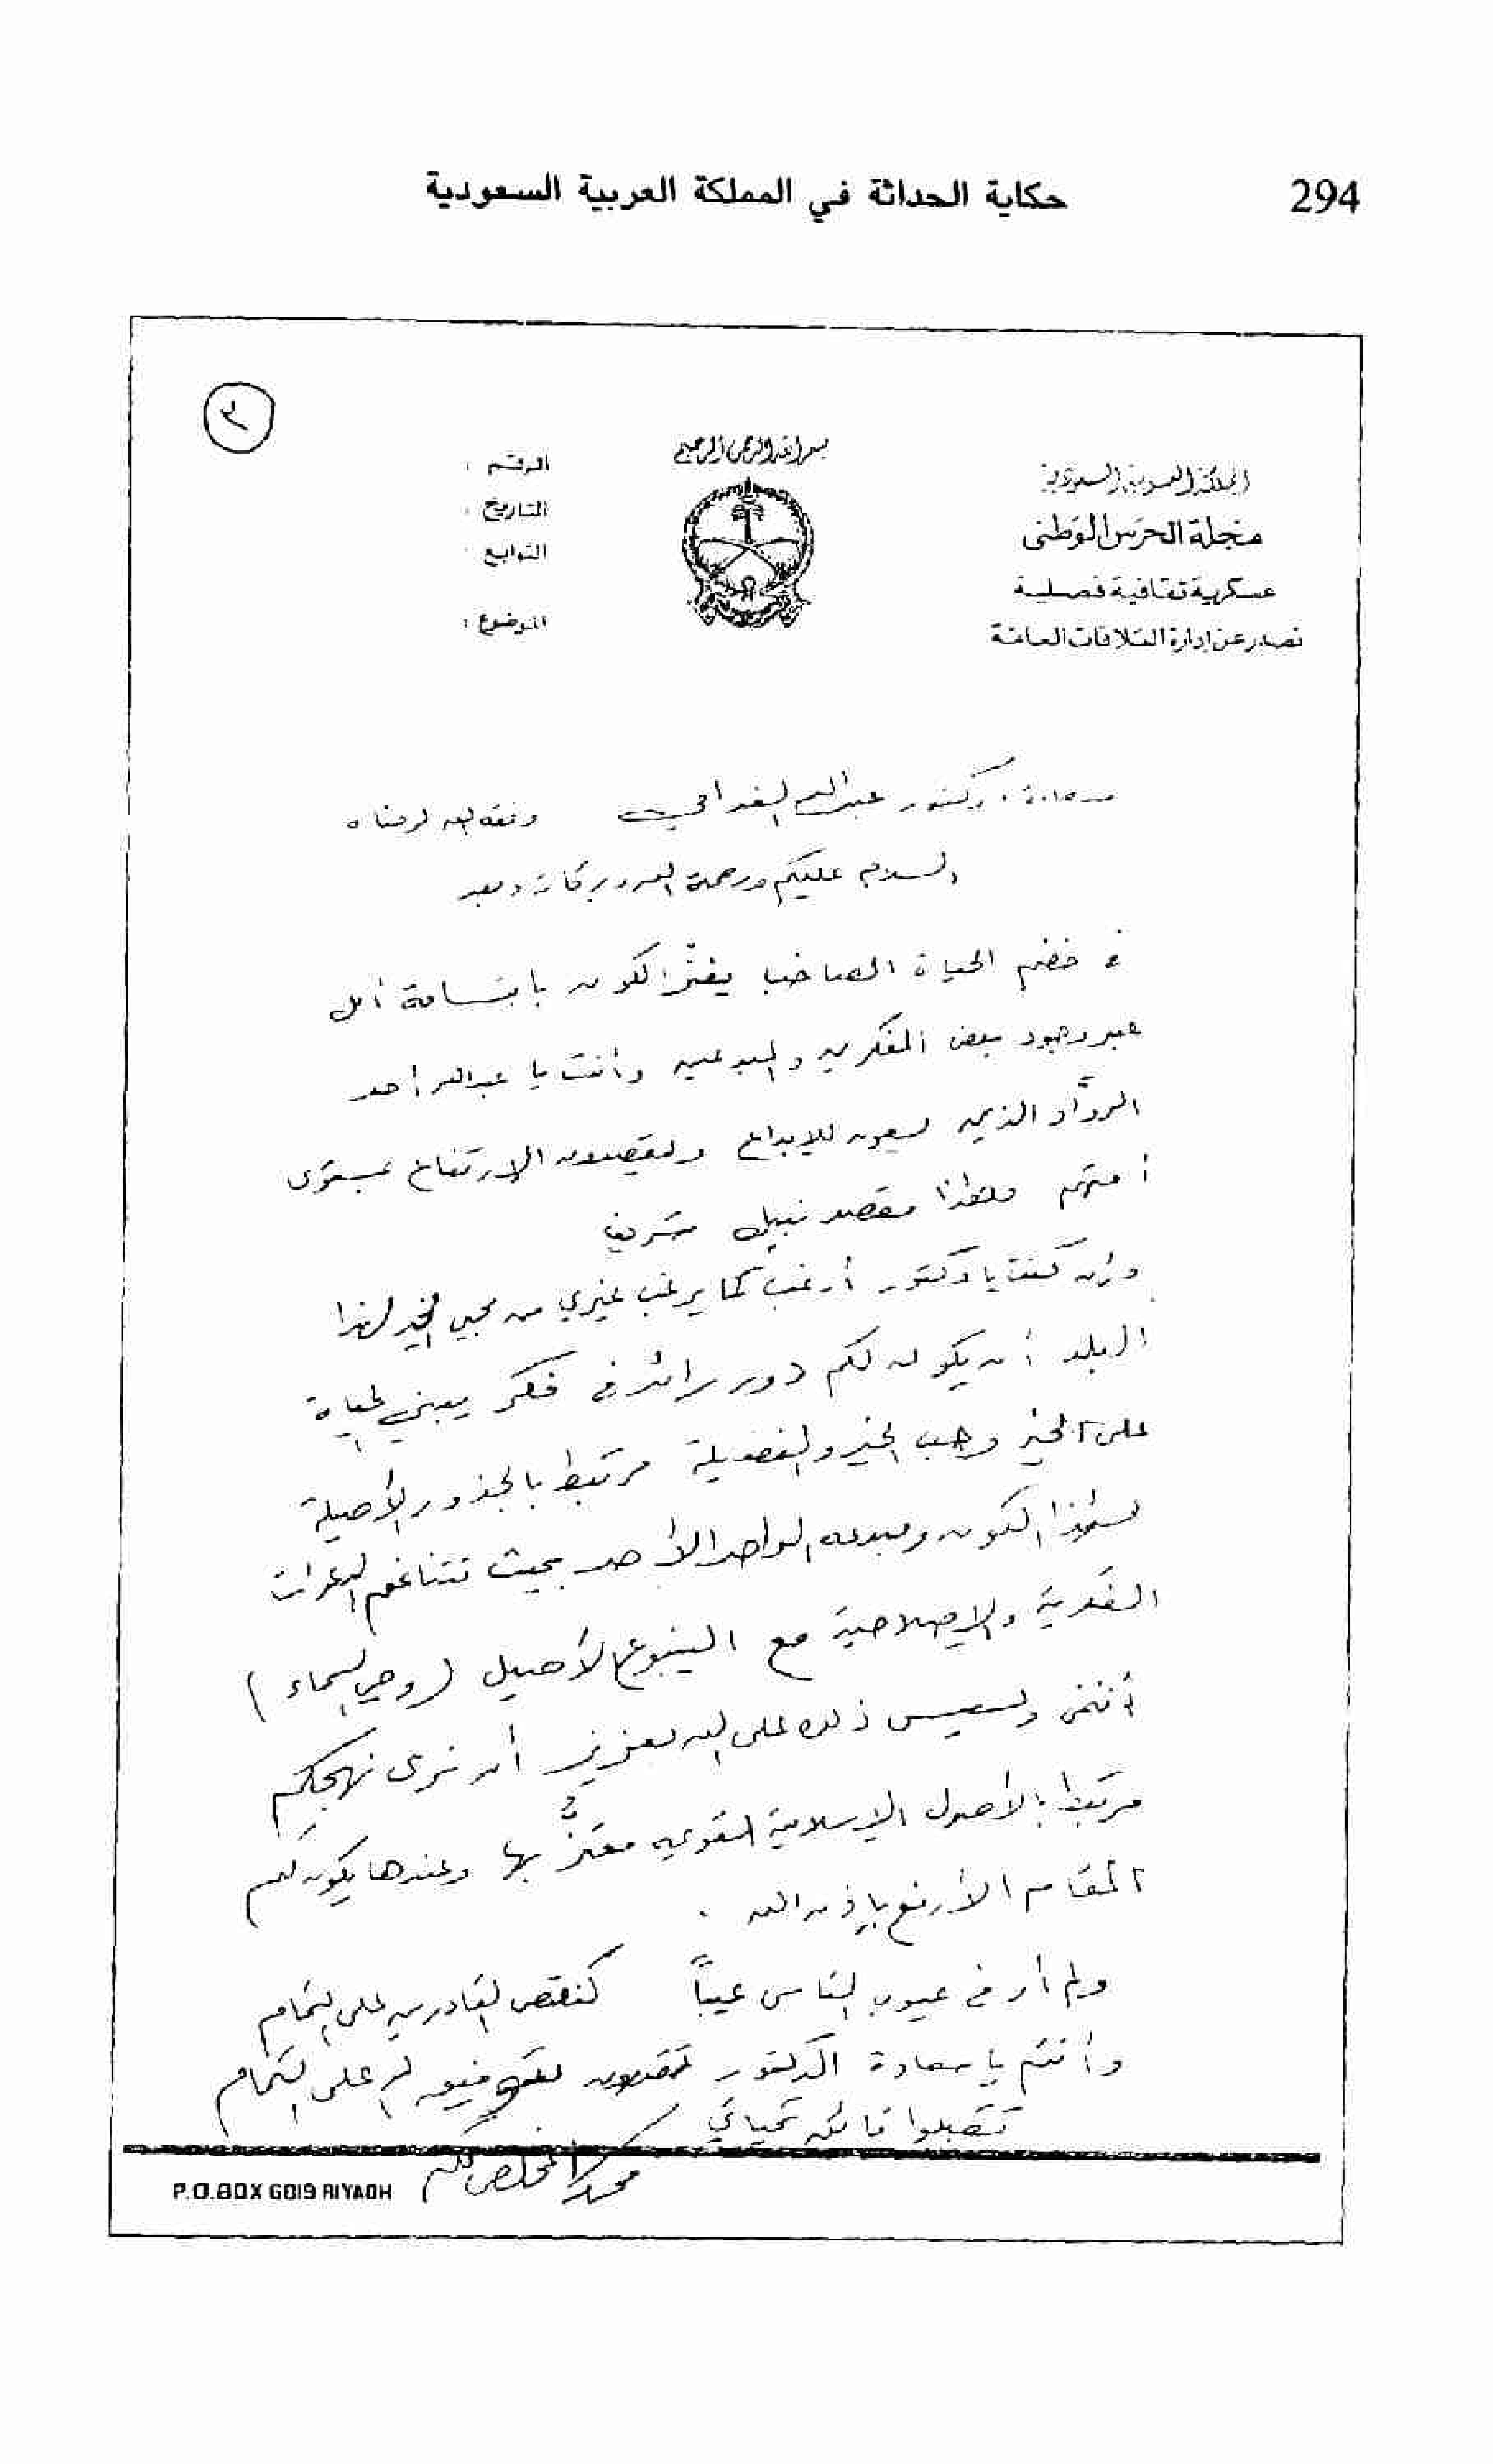 294
حكاية الحداثة في المملكة العربية السعودية
٣
بسم الله الرحمن الرحيم
المملكة العربية السعودية
مجلة الحرس الوطني
عسكرية ثقافية فصلية
تصدر عن إدارة العلاقات العامة
الرقم :
التاريخ :
التوابع :
الموضوع :
سعادة دكتور عبد الله الغذامي وفقه الله لرضاه
السلام عليكم ورحمة الله وبركاته وبعد
في خضم الحياة الصاخب يفترّ الكون بابتسامة أمل
عبر وجود بعض المفكرين والمبدعين وأنت يا عبد الله أحد
الروّاد الذين يسعون للإبداع ويقصدون الارتفاع بمستوى
أمتهم وهذا مقصد نبيل شريف
وإن كنت يا دكتور أرغب كما يرغب غيري من محبي الخير لهذا
البلد أن يكون لكم دور رائد في فكر يبني الحياة
على الخير وحب الخير والفضيلة مرتبط بالجذور الأصيلة
لهذا الكون ومبدعه الواحد الأحد بحيث تتناغم
النقدية والإصلاحية مع الينبوع الأصيل (وحي السماء)
أتمنى وليس ذلك على الله بعزيز أن نرى نهجكم
مرتبط بالأصول الإسلامية القويمة معتزٌّ بها وعندها يكون لكم
المقام الأرفع بإذن الله .
ولم أر في عيوب الناس عيباً كنقص القادرين على التمام
وأنتم يا سعادة الدكتور على التمام
تقبلوا فائق تحياتي
المخلص لكم
محمد
P.O.BOX 6019 RIYADH